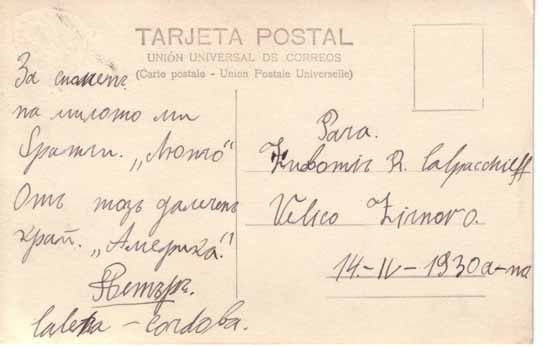 TARJETA POSTAL
UNIÓN UNIVERSAL DE CORREOS
(Carte postale - Union Postale Universelle)
За спомень
на милото ми
братчи. „Люто“
Отъ тозъ далеченъ
край. „Америка“.
Петъръ.
Calera - Cordoba.
Para.
Lubomir R. Calpacchieff
Velico Tirnovo.
14-IV-1930 a-na